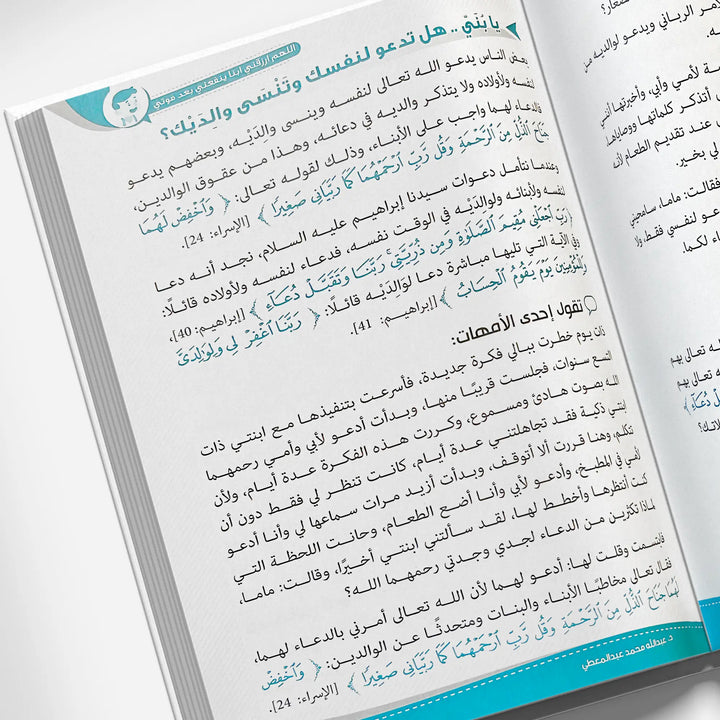 اللهم ارزقني ابنا ينفعني بعد موتي
يا بُنَيَّ .. هل تدعو لنفسك وتَنْسَى والِدَيْك؟
بعض الناس يدعو الله تعالى لنفسه وينسى والِدَيْه، وبعضهم يدعو
لنفسه ولأولاده ولا يتذكر والديه في دعائه، وهذا من عقوق الوالدين،
فالدعاء لهما واجب على الأبناء، وذلك لقوله تعالى: ﴿ وَٱخْفِضْ لَهُمَا
جَنَاحَ ٱلذُّلِّ مِنَ ٱلرَّحْمَةِ وَقُل رَّبِّ ٱرْحَمْهُمَا كَمَا رَبَّيَانِي صَغِيرًا ﴾ [الإسراء: 24].
وعندما نتأمل دعوات سيدنا إبراهيم عليه السلام، نجد أنه دعا
لنفسه ولأبنائه ولوالدَيْه في الوقت نفسه، فدعاء لنفسه ولأولاده قائلًا:
﴿ رَبِّ ٱجْعَلْنِي مُقِيمَ ٱلصَّلَوٰةِ وَمِن ذُرِّيَّتِي ۚ رَبَّنَا وَتَقَبَّلْ دُعَآءِ ﴾ [إبراهيم: 40]،
وفي الآية التي تليها مباشرة دعا لوَالِدَيْه قائلًا: ﴿ رَبَّنَا ٱغْفِرْ لِي وَلِوَٰلِدَيَّ
وَلِلْمُؤْمِنِينَ يَوْمَ يَقُومُ ٱلْحِسَابُ ﴾ [إبراهيم: 41].
تقول إحدى الأمهات:
ذات يوم خطرت ببالي فكرة جديدة، فأسرعت بتنفيذها مع ابنتي ذات
التسع سنوات، فجلست قريبًا منها، وبدأت أدعو لأبي وأمي رحمهما
الله بصوت هادئ ومسموع، وكررت هذه الفكرة عدة أيام، ولأن
ابنتي ذكية فقد تجاهلتني عدة أيام، كانت تنظر لي فقط دون أن
تتكلم، وهنا قررت ألا أتوقف، وبدأت أزيد مرات سماعها لي وأنا أدعو
لأمي في المطبخ، وأدعو لأبي وأنا أضع الطعام، وحانت اللحظة التي
كنت أنتظرها وأخطط لها، لقد سألتني ابنتي أخيرًا، وقالت: ماما،
لماذا تكثرين من الدعاء لجدي وجدتي رحمهما الله؟
فابتسمت وقلت لها: أدعو لهما لأن الله تعالى أمرني بالدعاء لهما،
فقال تعالى مخاطبًا الأبناء والبنات ومتحدثًا عن الوالدين: ﴿ وَٱخْفِضْ
لَهُمَا جَنَاحَ ٱلذُّلِّ مِنَ ٱلرَّحْمَةِ وَقُل رَّبِّ ٱرْحَمْهُمَا كَمَا رَبَّيَانِي صَغِيرًا ﴾ [الإسراء: 24].
د. عبدالله محمد عبدالمعطي
الرباني ويدعو لوالديه
لأمي وأبي، وأخبرتها
أتذكر كلماتها ووصاياها
عند تقديم الطعام
لي بخير.
فقالت: ماما، سامحيني
لنفسي فقط، ولا
لكما.
تعالى بهم
تعالى بهم
دُعَآءِ ﴾